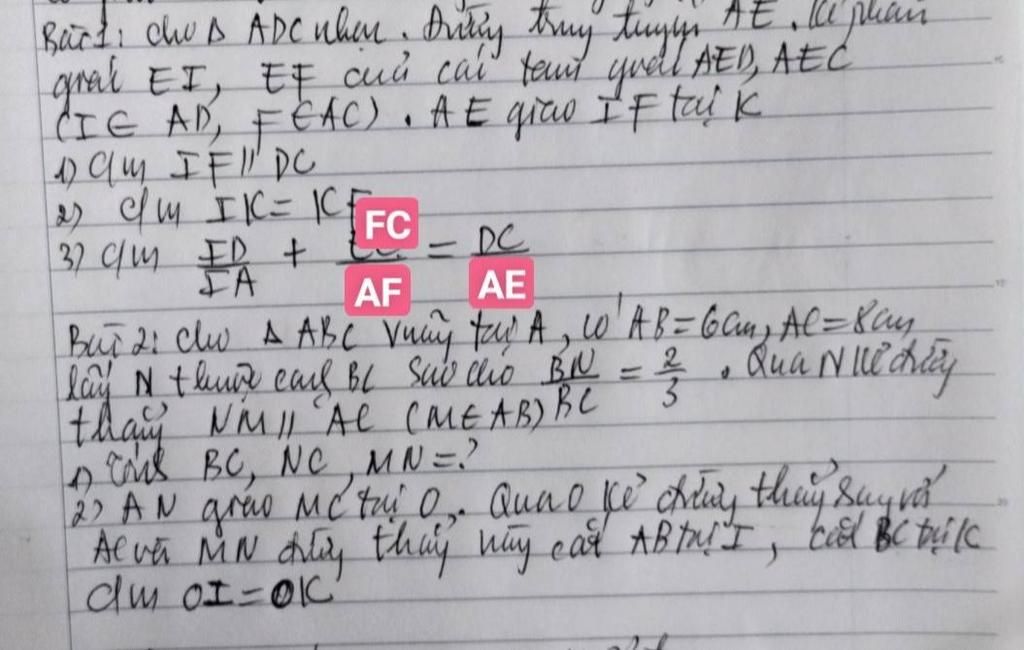 Bài 1: cho Δ ADC nhọn. Đường trung tuyến AE. Kẻ phân
giác EI, EF của các tam giác AED, AEC
(I ∈ AD, F ∈ AC). AE giao IF tại K
1) C/m IF // DC
2) C/m IK = KF
3) C/m ID/IA + FC/AF = DC/AE
Bài 2: Cho Δ ABC vuông tại A, có AB = 6cm, AC = 8cm
lấy N thuộc cạnh BC sao cho BN/BC = 2/3. Qua N kẻ đường
thẳng NM // AC (M ∈ AB)
1) Tính BC, NC, MN = ?
2) AN giao MC tại O. Qua O kẻ đường thẳng song với
AC và MN đường thẳng này cắt AB tại I, cắt BC tại K
C/m OI = OK